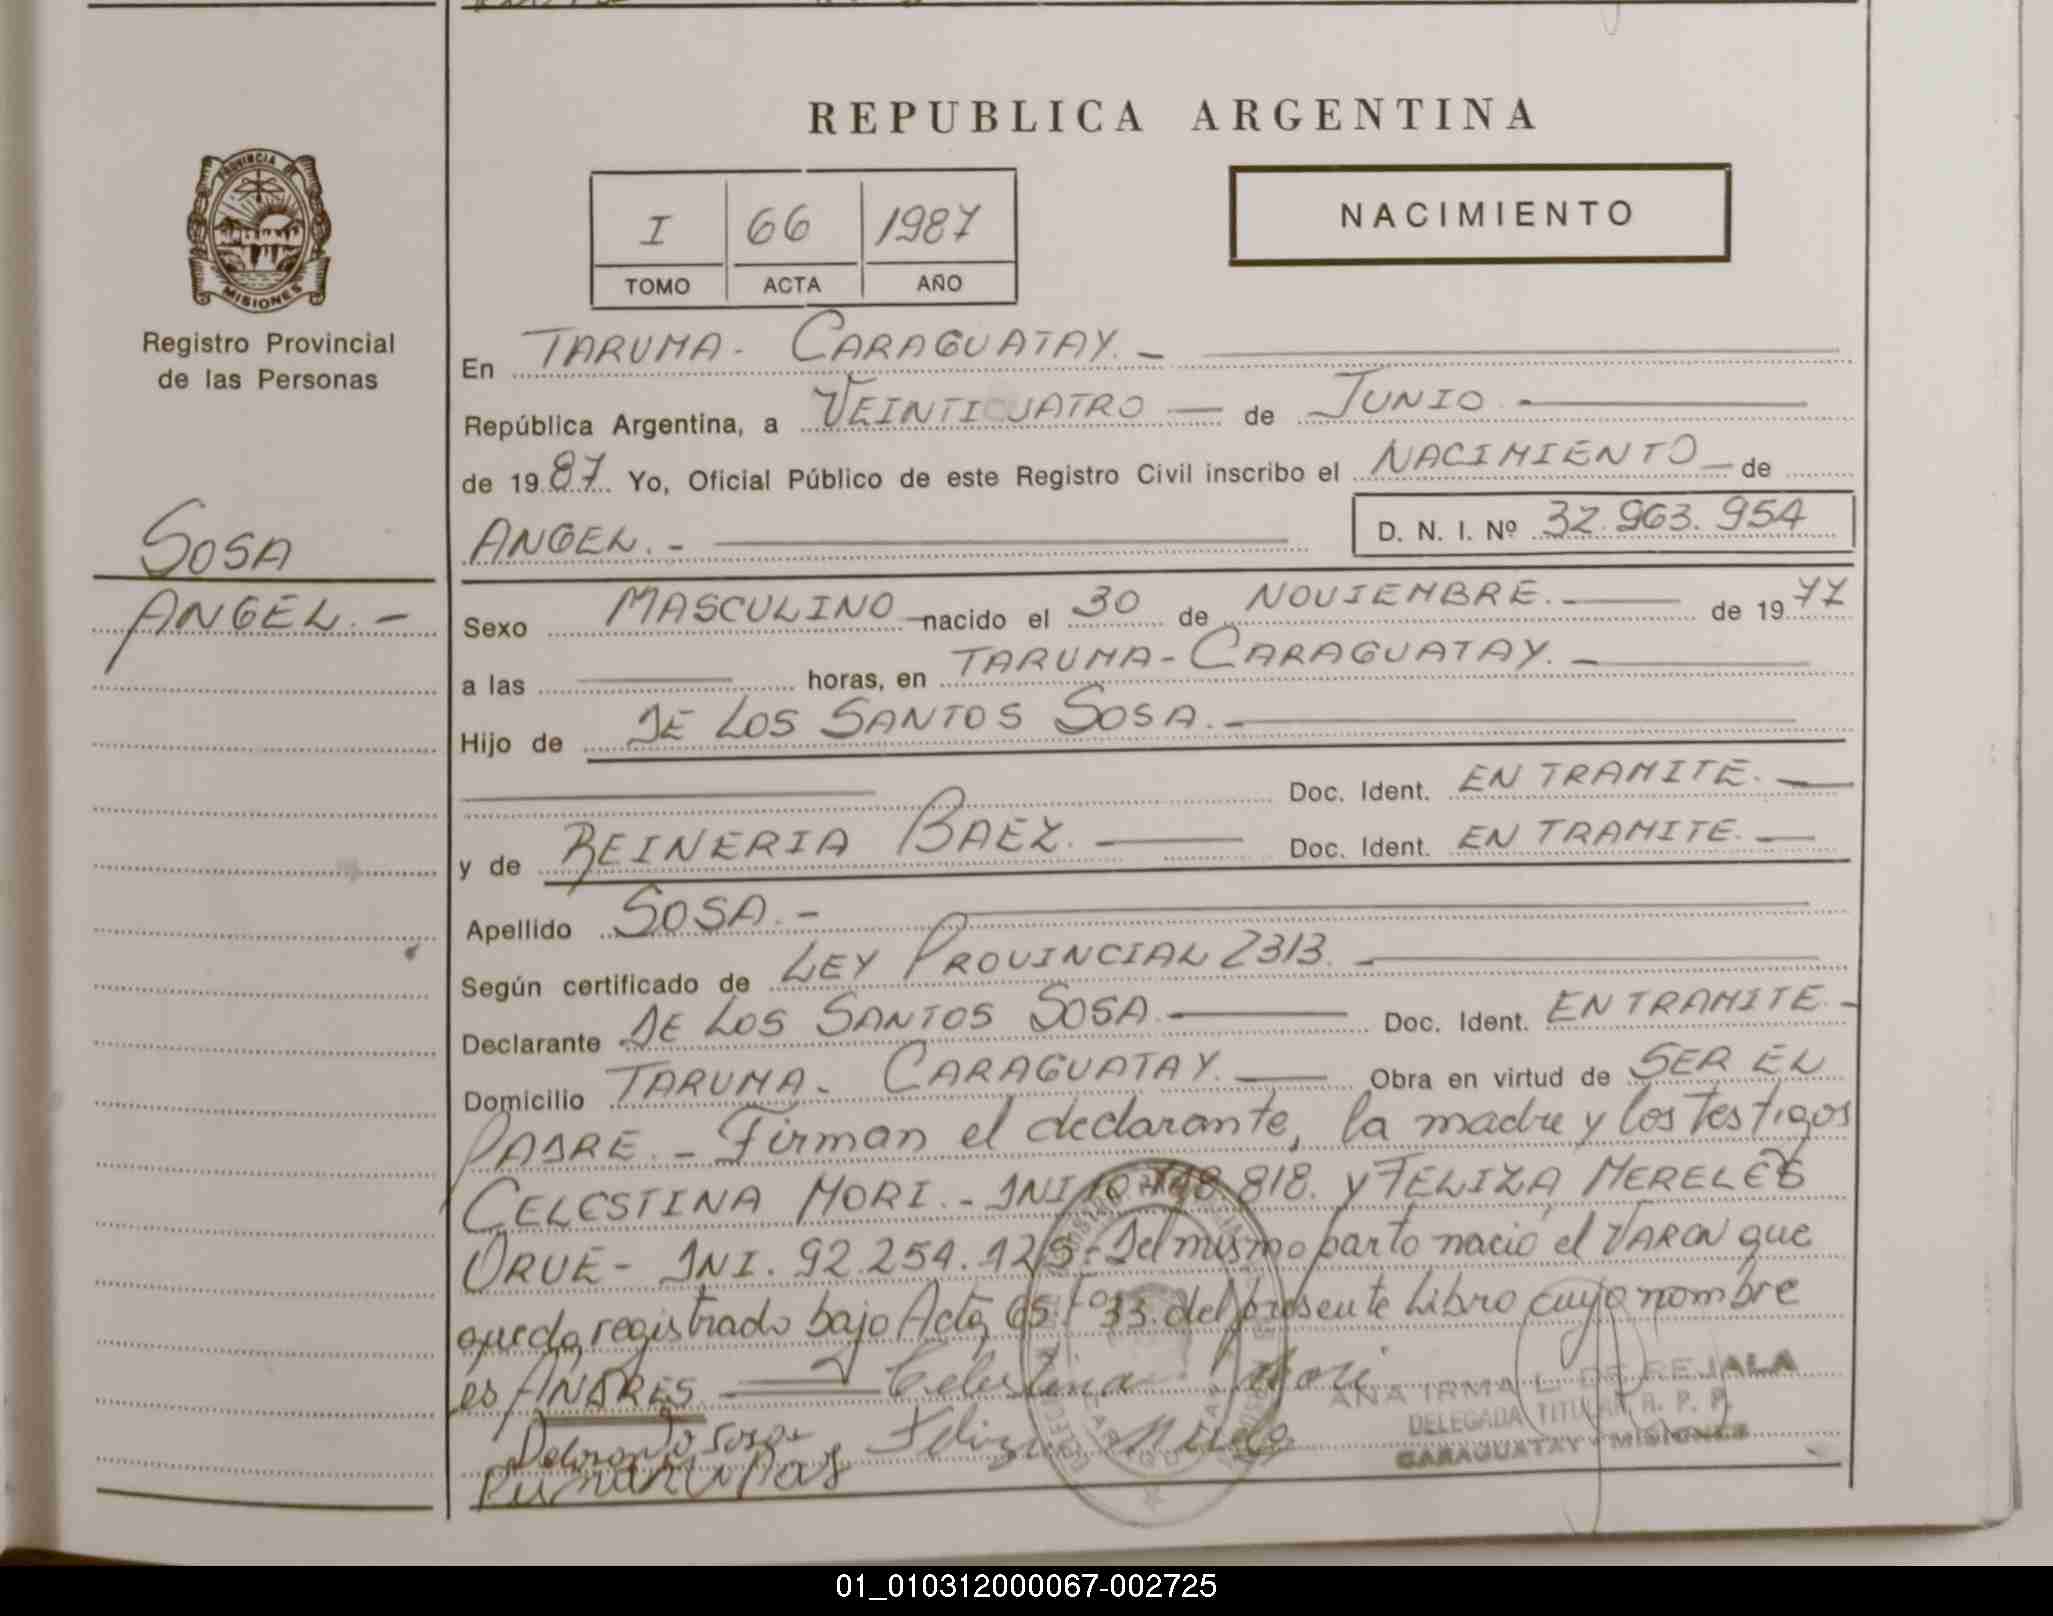 REPUBLICA ARGENTINA
PROVINCIA DE
MISIONES
Registro Provincial
de las Personas
I 66 1987
TOMO ACTA AÑO
NACIMIENTO
En TARUMA - CARAGUATAY. -
República Argentina, a VEINTICUATRO — de JUNIO. -
de 1987. Yo, Oficial Público de este Registro Civil inscribo el NACIMIENTO — de
SOSA
ANGEL. -
ANGEL. - D. N. I. Nº 32.963.954
Sexo MASCULINO — nacido el 30 de NOVIEMBRE. — de 1977
a las — horas, en TARUMA - CARAGUATAY. -
Hijo de DE LOS SANTOS SOSA. -
— Doc. Ident. EN TRAMITE. -
y de REINERIA BAEZ. — Doc. Ident. EN TRAMITE. —
Apellido SOSA. -
Según certificado de LEY PROVINCIAL 2313. -
Declarante DE LOS SANTOS SOSA — Doc. Ident. EN TRAMITE -
Domicilio TARUMA - CARAGUATAY. — Obra en virtud de SER EL
PADRE. - Firman el declarante, la madre y los Testigos
CELESTINA MORI. - DNI 818. y FELIZA MERELES
ORUE - DNI. 92.254.125 - Del mismo parto nació el VARON que
queda registrado bajo Acta 65. Fº 33. del presente Libro cuyo nombre
es ANDRES. — Celestina Mori
ANA IRMA L. DE REJALA
DELEGADA TITULAR R. P. P.
CARAGUATAY - MISIONES
01_010312000067-002725